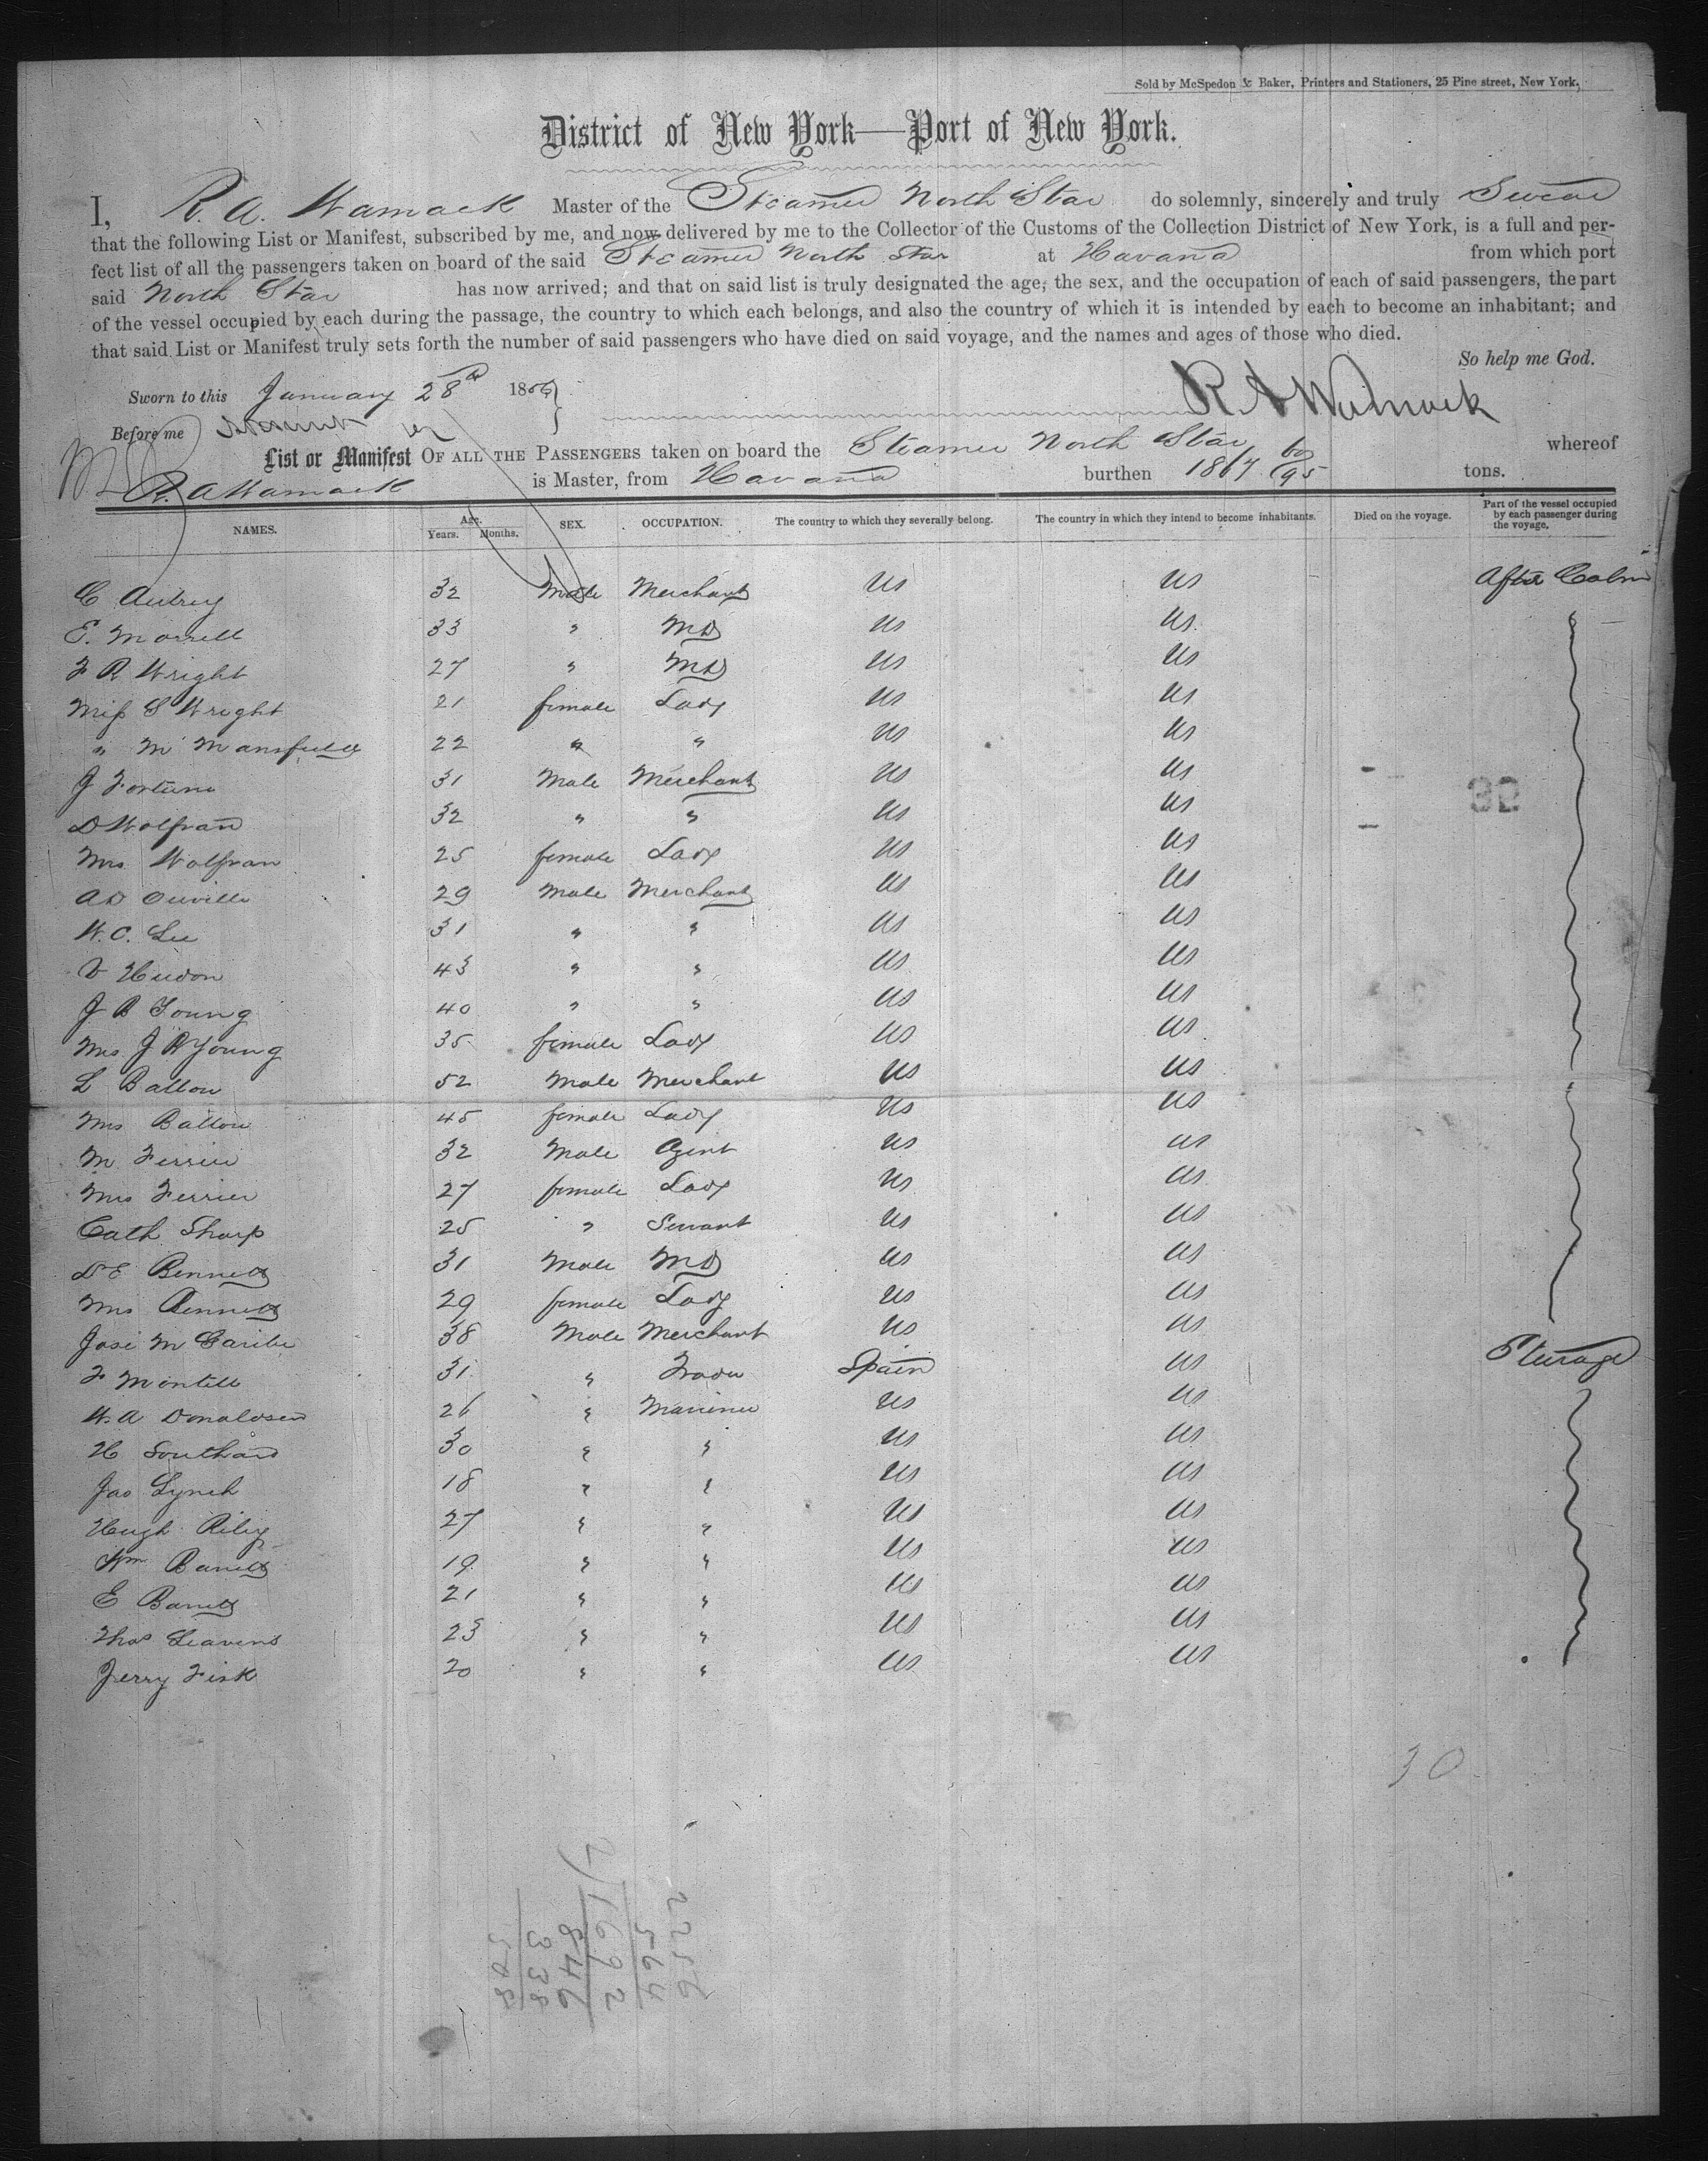 Sold by McSpedon & Baker, Printers and Stationers, 25 Pine street, New York.
District of New York—Port of New York.
I, R. A. Wamack Master of the Steamer North Star do solemnly, sincerely and truly Swear
that the following List or Manifest, subscribed by me, and now delivered by me to the Collector of the Customs of the Collection District of New York, is a full and per-
fect list of all the passengers taken on board of the said Steamer North Star at Havana from which port
said North Star has now arrived; and that on said list is truly designated the age, the sex, and the occupation of each of said passengers, the part
of the vessel occupied by each during the passage, the country to which each belongs, and also the country of which it is intended by each to become an inhabitant; and
that said List or Manifest truly sets forth the number of said passengers who have died on said voyage, and the names and ages of those who died.
So help me God.
Sworn to this January 28th 1856
R A Wamack
Before me
List or Manifest OF ALL THE PASSENGERS taken on board the Steamer North Star whereof
R. A Wamack is Master, from Havana burthen 1867 60/95 tons.
NAMES. Age. Years. Months. SEX. OCCUPATION. The country to which they severally belong. The country in which they intend to become inhabitants. Died on the voyage. Part of the vessel occupied by each passenger during the voyage.
C Autrey 32 Male Merchant US US After Cabin
E. Morrell 33 " MD US US
F R Wright 27 " MD US US
Miss S Wright 21 female Lady US US
" M Mansfield 22 " " US US
J Fortune 31 Male Merchant US US
D Wolfran 32 " " US US
32
Mrs Wolfran 25 female Lady US US
A D Ouville 29 Male Merchant US US
W. C. Lee 31 " " US US
V Hudon 43 " " US US
J R Young 40 " " US US
Mrs J R Young 35 female Lady US US
L Ballou 52 Male Merchant US US
Mrs Ballou 45 female Lady US US
M Ferrier 32 Male Agent US US
Mrs Ferrier 27 female Lady US US
Cath Sharp 25 " Servant US US
D E Bennett 31 Male MD US US
Mrs Bennett 29 female Lady US US
Jose M Caribe 38 Male Merchant US US
F Montell 31 " Trader Spain US Steerage
W. A Donaldsen 26 " Mariner US US
H Southard 30 " " US US
Jas Lynch 18 " " US US
Hugh Riley 27 " " US US
Wm Barrett 19 " " US US
E Barrett 21 " " US US
Thos Leavens 23 " " US US
Jerry Fisk 20 " " US US
30
2256
564
2)1692
846
338